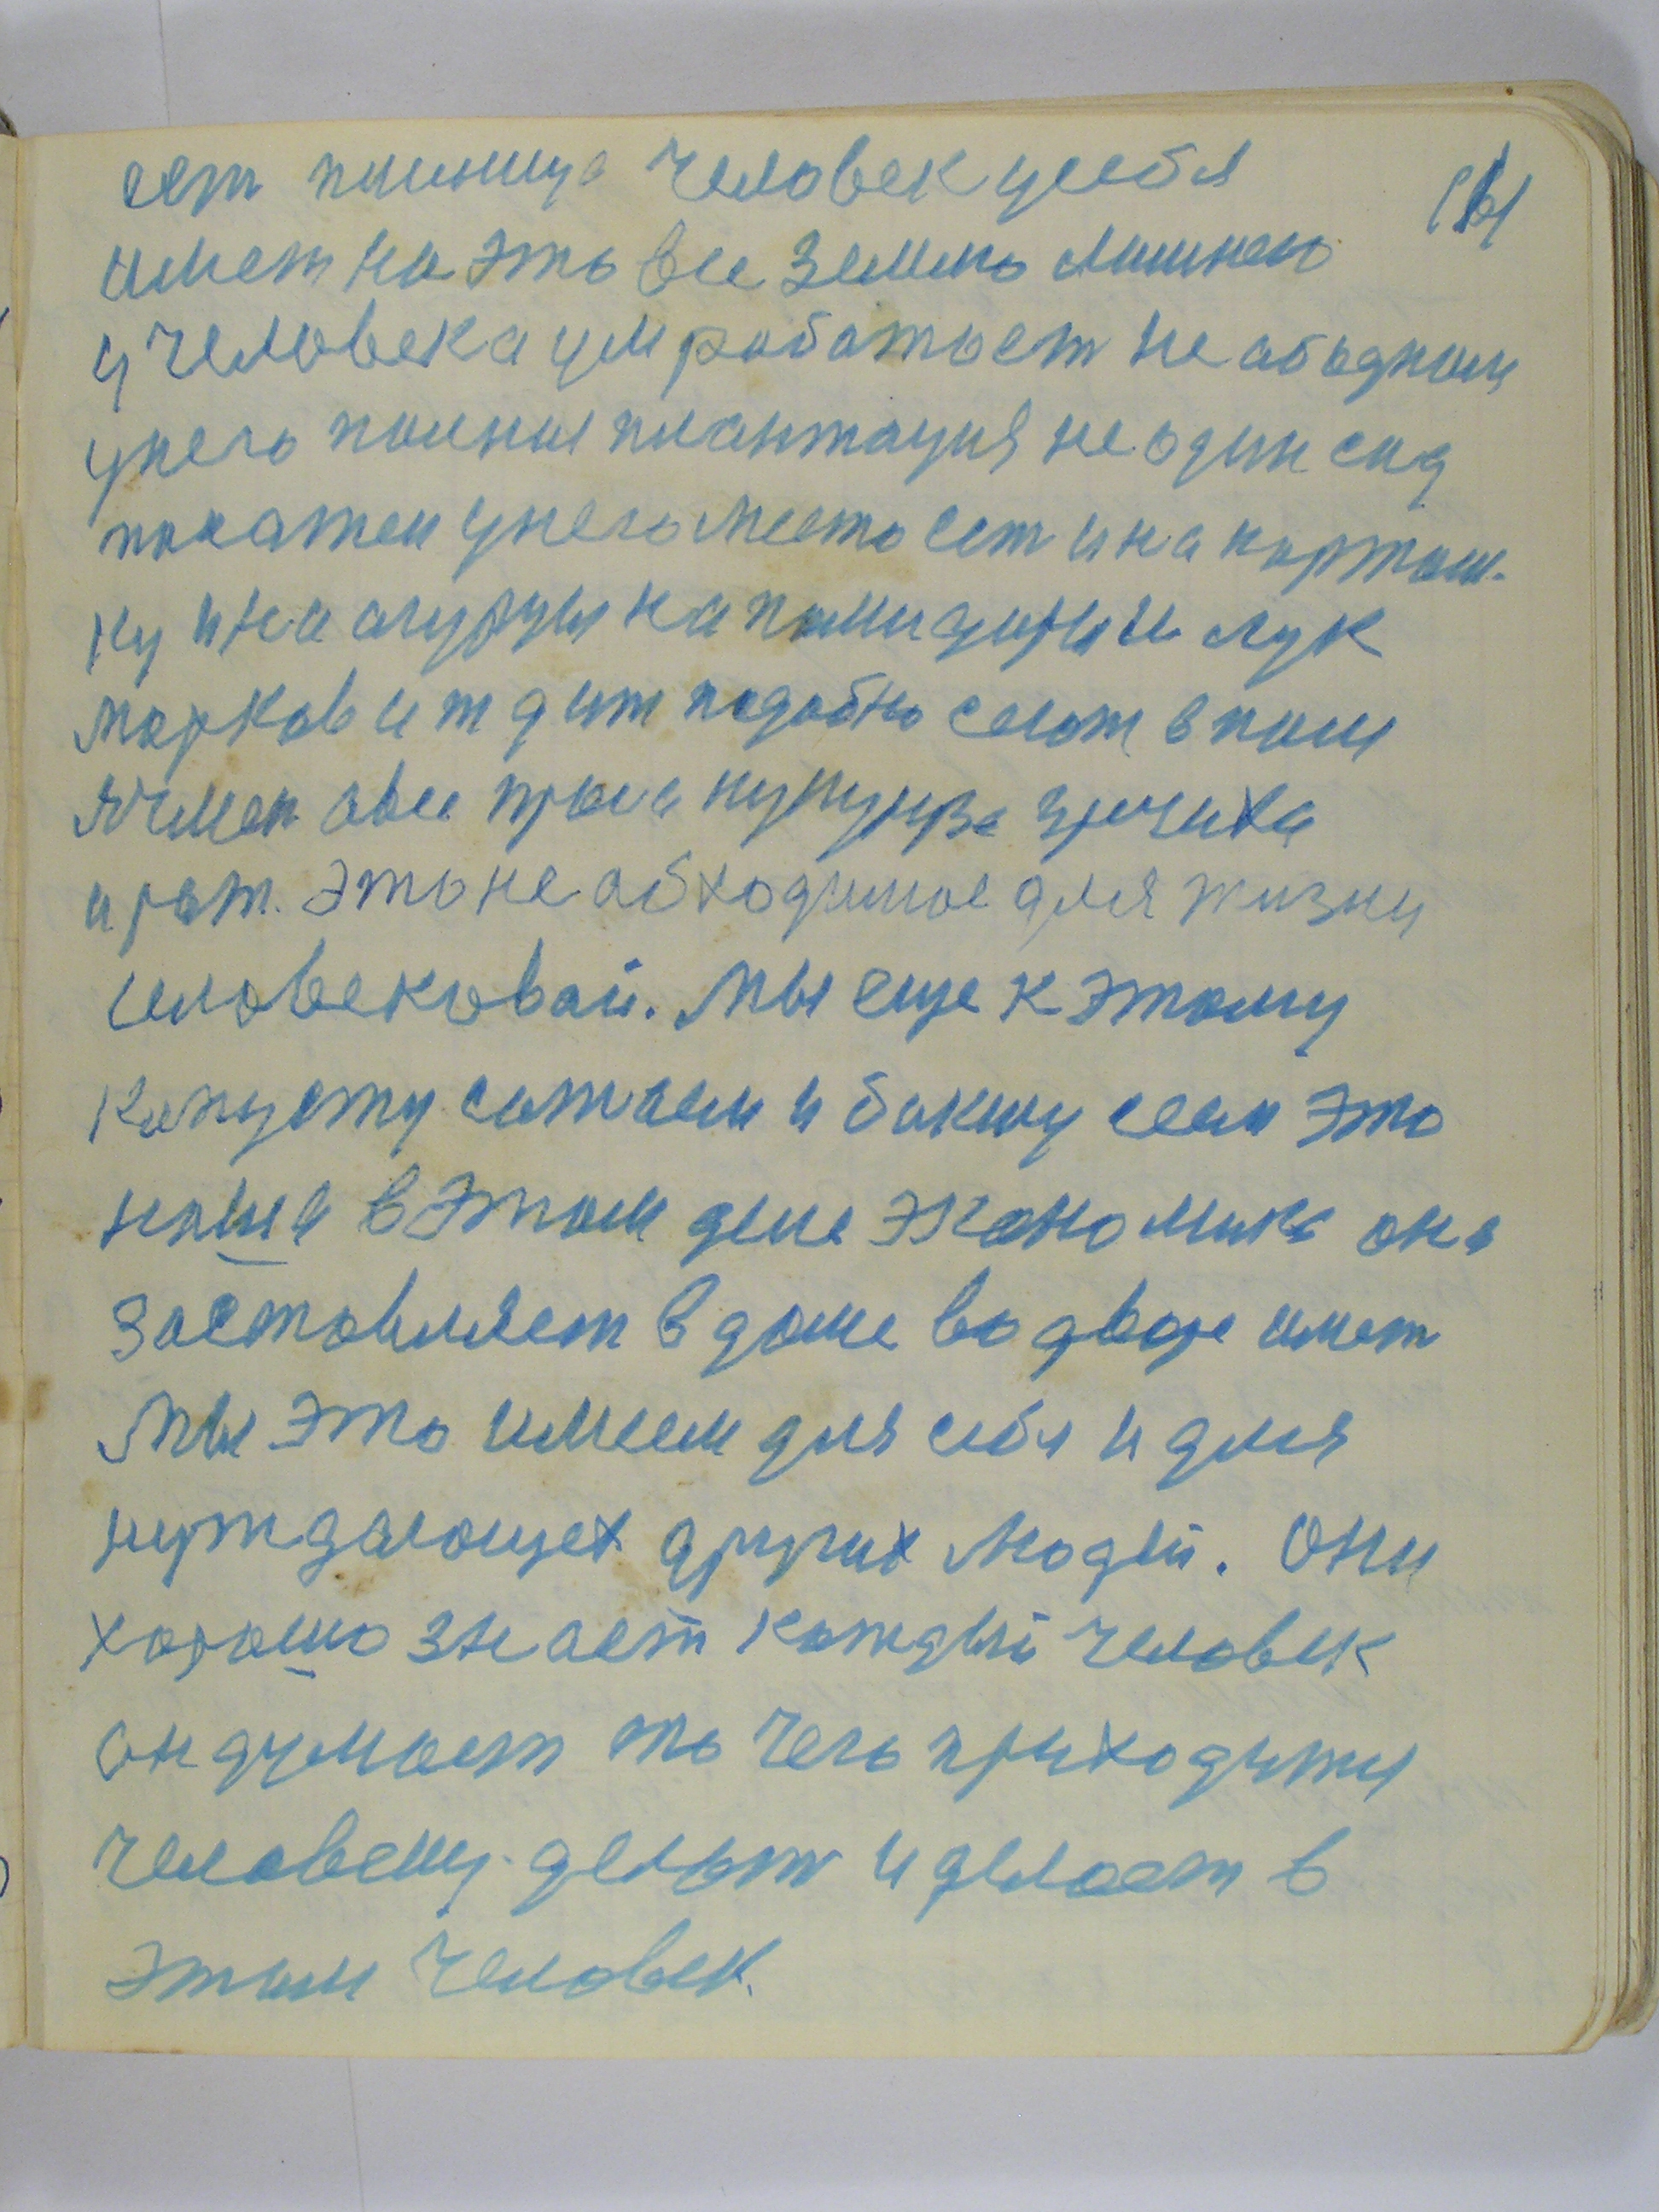 сет пшеница человек усебя
имет на это все землю лишнею
у человека ум роботает не обадном
унего полная плантация не один сад
посажен унего место ест и на картош-
ку и на огурцы на помидоры и лук
морков и т д и т подобно сеют в поли
ячмен овес проса кукуруза гречиха
и рет. это не обходимое для жизни
человековай. Мы еще к этому
капусту сажаем и бахчу сеем это
наша в этом деле экономика она
заставляет в доме во дворе имет
мы это имеем для себя и для
нуждающех других людей. Они
хорошо знает каждый человек
он думает то чего приходится
человеку делат и делает в
этом человек.